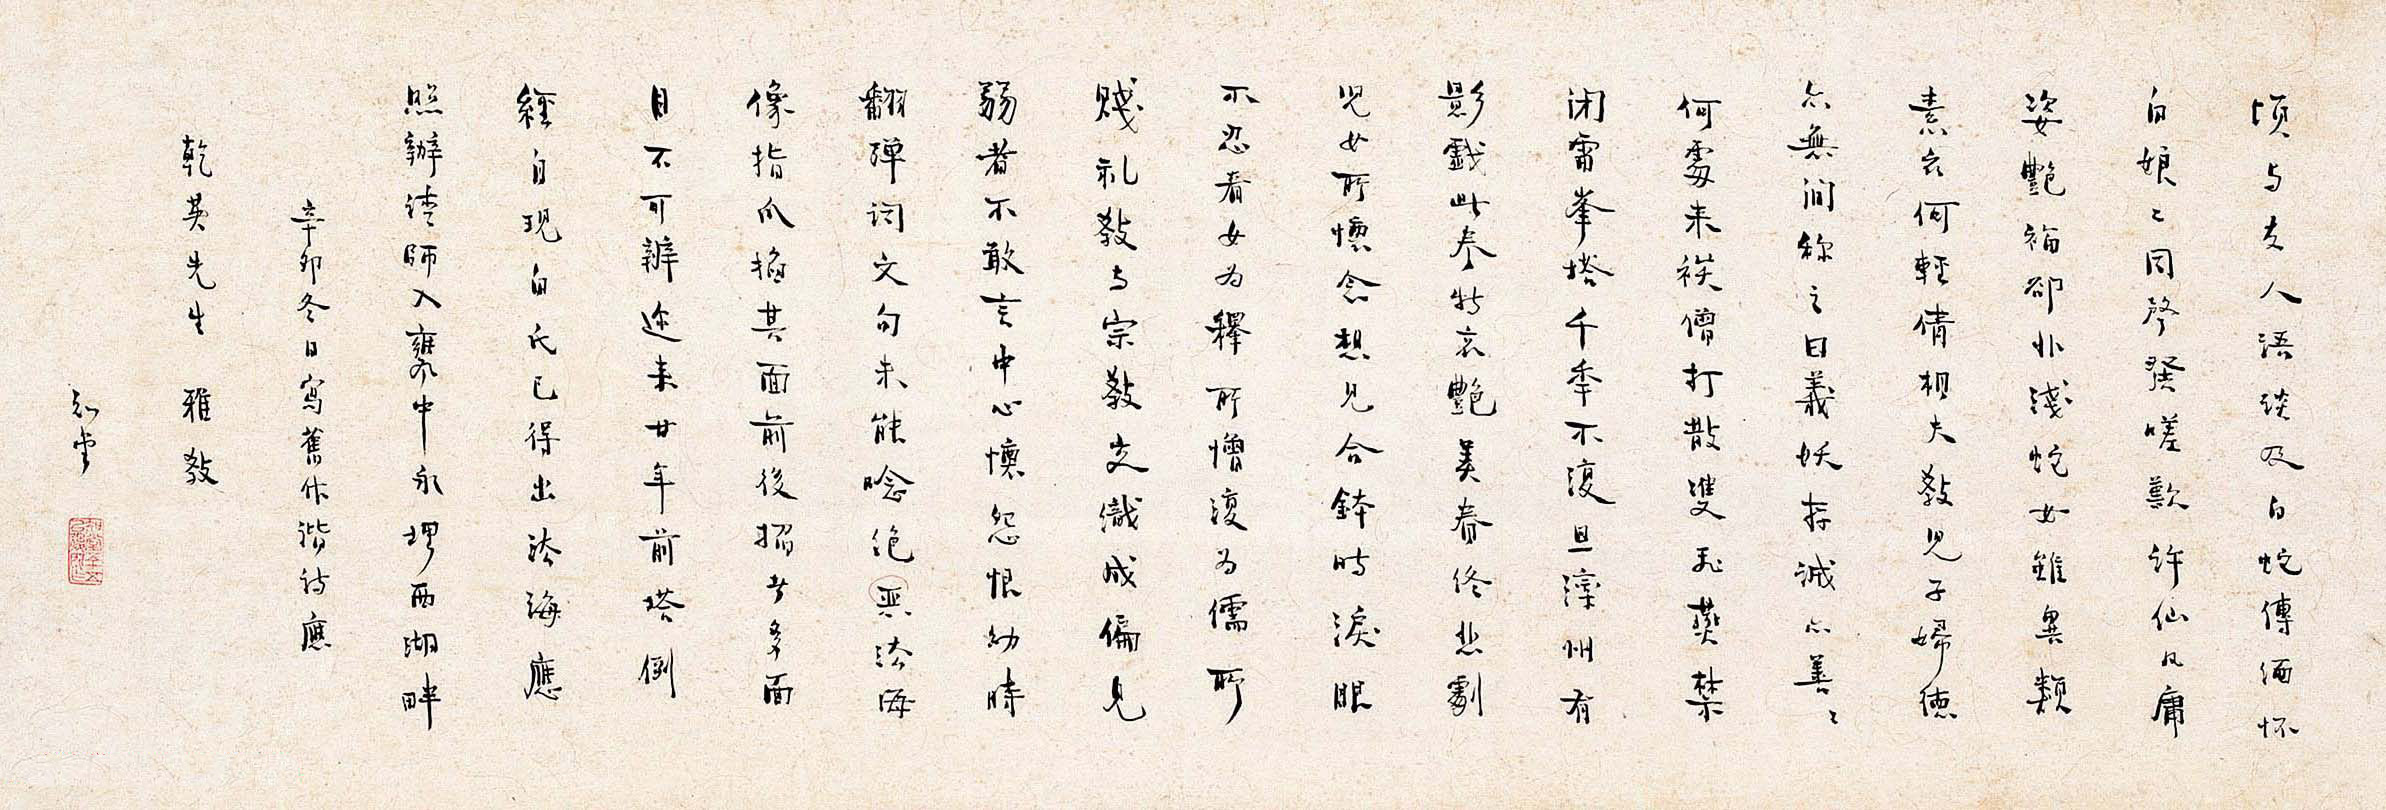 頃与友人語談及白蛇傳緬怀
白娘〻同聲發嗟歎許仙凡庸
姿艷福卻非淺蛇女雖異類
素衣何輕倩相夫教兒子婦德
亦無間稱之曰義妖存誠亦善〻
何處来妖僧打散雙飛燕禁
闭雷峯塔千季不復旦滦州有
影戲此卷特哀艷美眷終悲劇
児女所懷念想見合鉢時淚眼
不忍看女为釋所憎復为儒所
賤礼教与宗教交織成偏見
弱者不敢言中心懷怨恨幼時
翻弹词文句未能唸絕惡法海
像指爪掐其面前後掐者多面
目不可辨迩来廿年前塔倒
經自現白氏已得出法海應
照辦請師入甕中永埋西湖畔
辛卯冬日寫舊作諧詩應
乾英先生 雅教
知堂